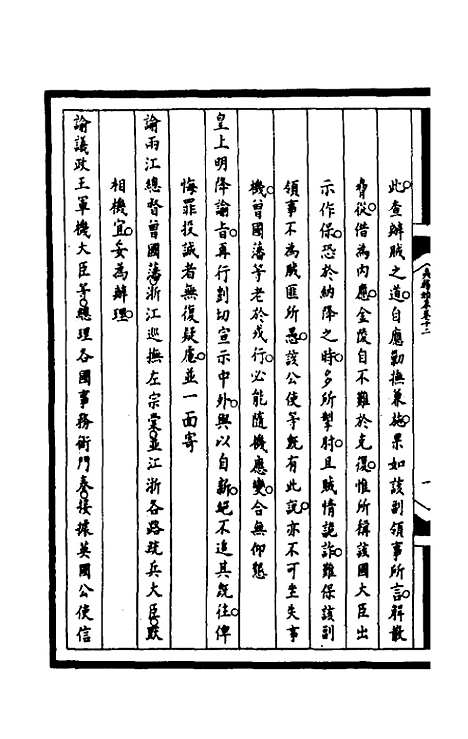 此查辦賊之道自應勦撫兼施果如該副領事所言解散
脅從借為內應金陵自不難於克復惟所稱該國大臣出
示作保恐於納降之時多所掣肘且賊情詭詐難保該副
領事不為賊匪所愚該公使等既有此說亦不可坐失事
機曾國藩等老於戎行必能隨機應變合無仰懇
皇上明降諭旨再行剴切宣示中外與以自新絕不追其既往俾
悔罪投誠者無復疑慮並一面寄
諭兩江總督曾國藩浙江巡撫左宗棠並江浙各路統兵大臣
相機宜妥為辦理
諭議政王軍機大臣等總理各國事務衙門奏接據英國公使信